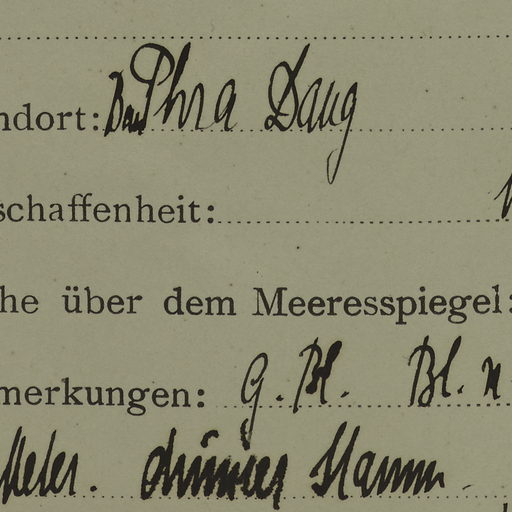 ndort: Ban Phra Dang
schaffenheit:
he über dem Meeresspiegel:
merkungen: G. Bl. Bl. n
Meter. dünner Stamm